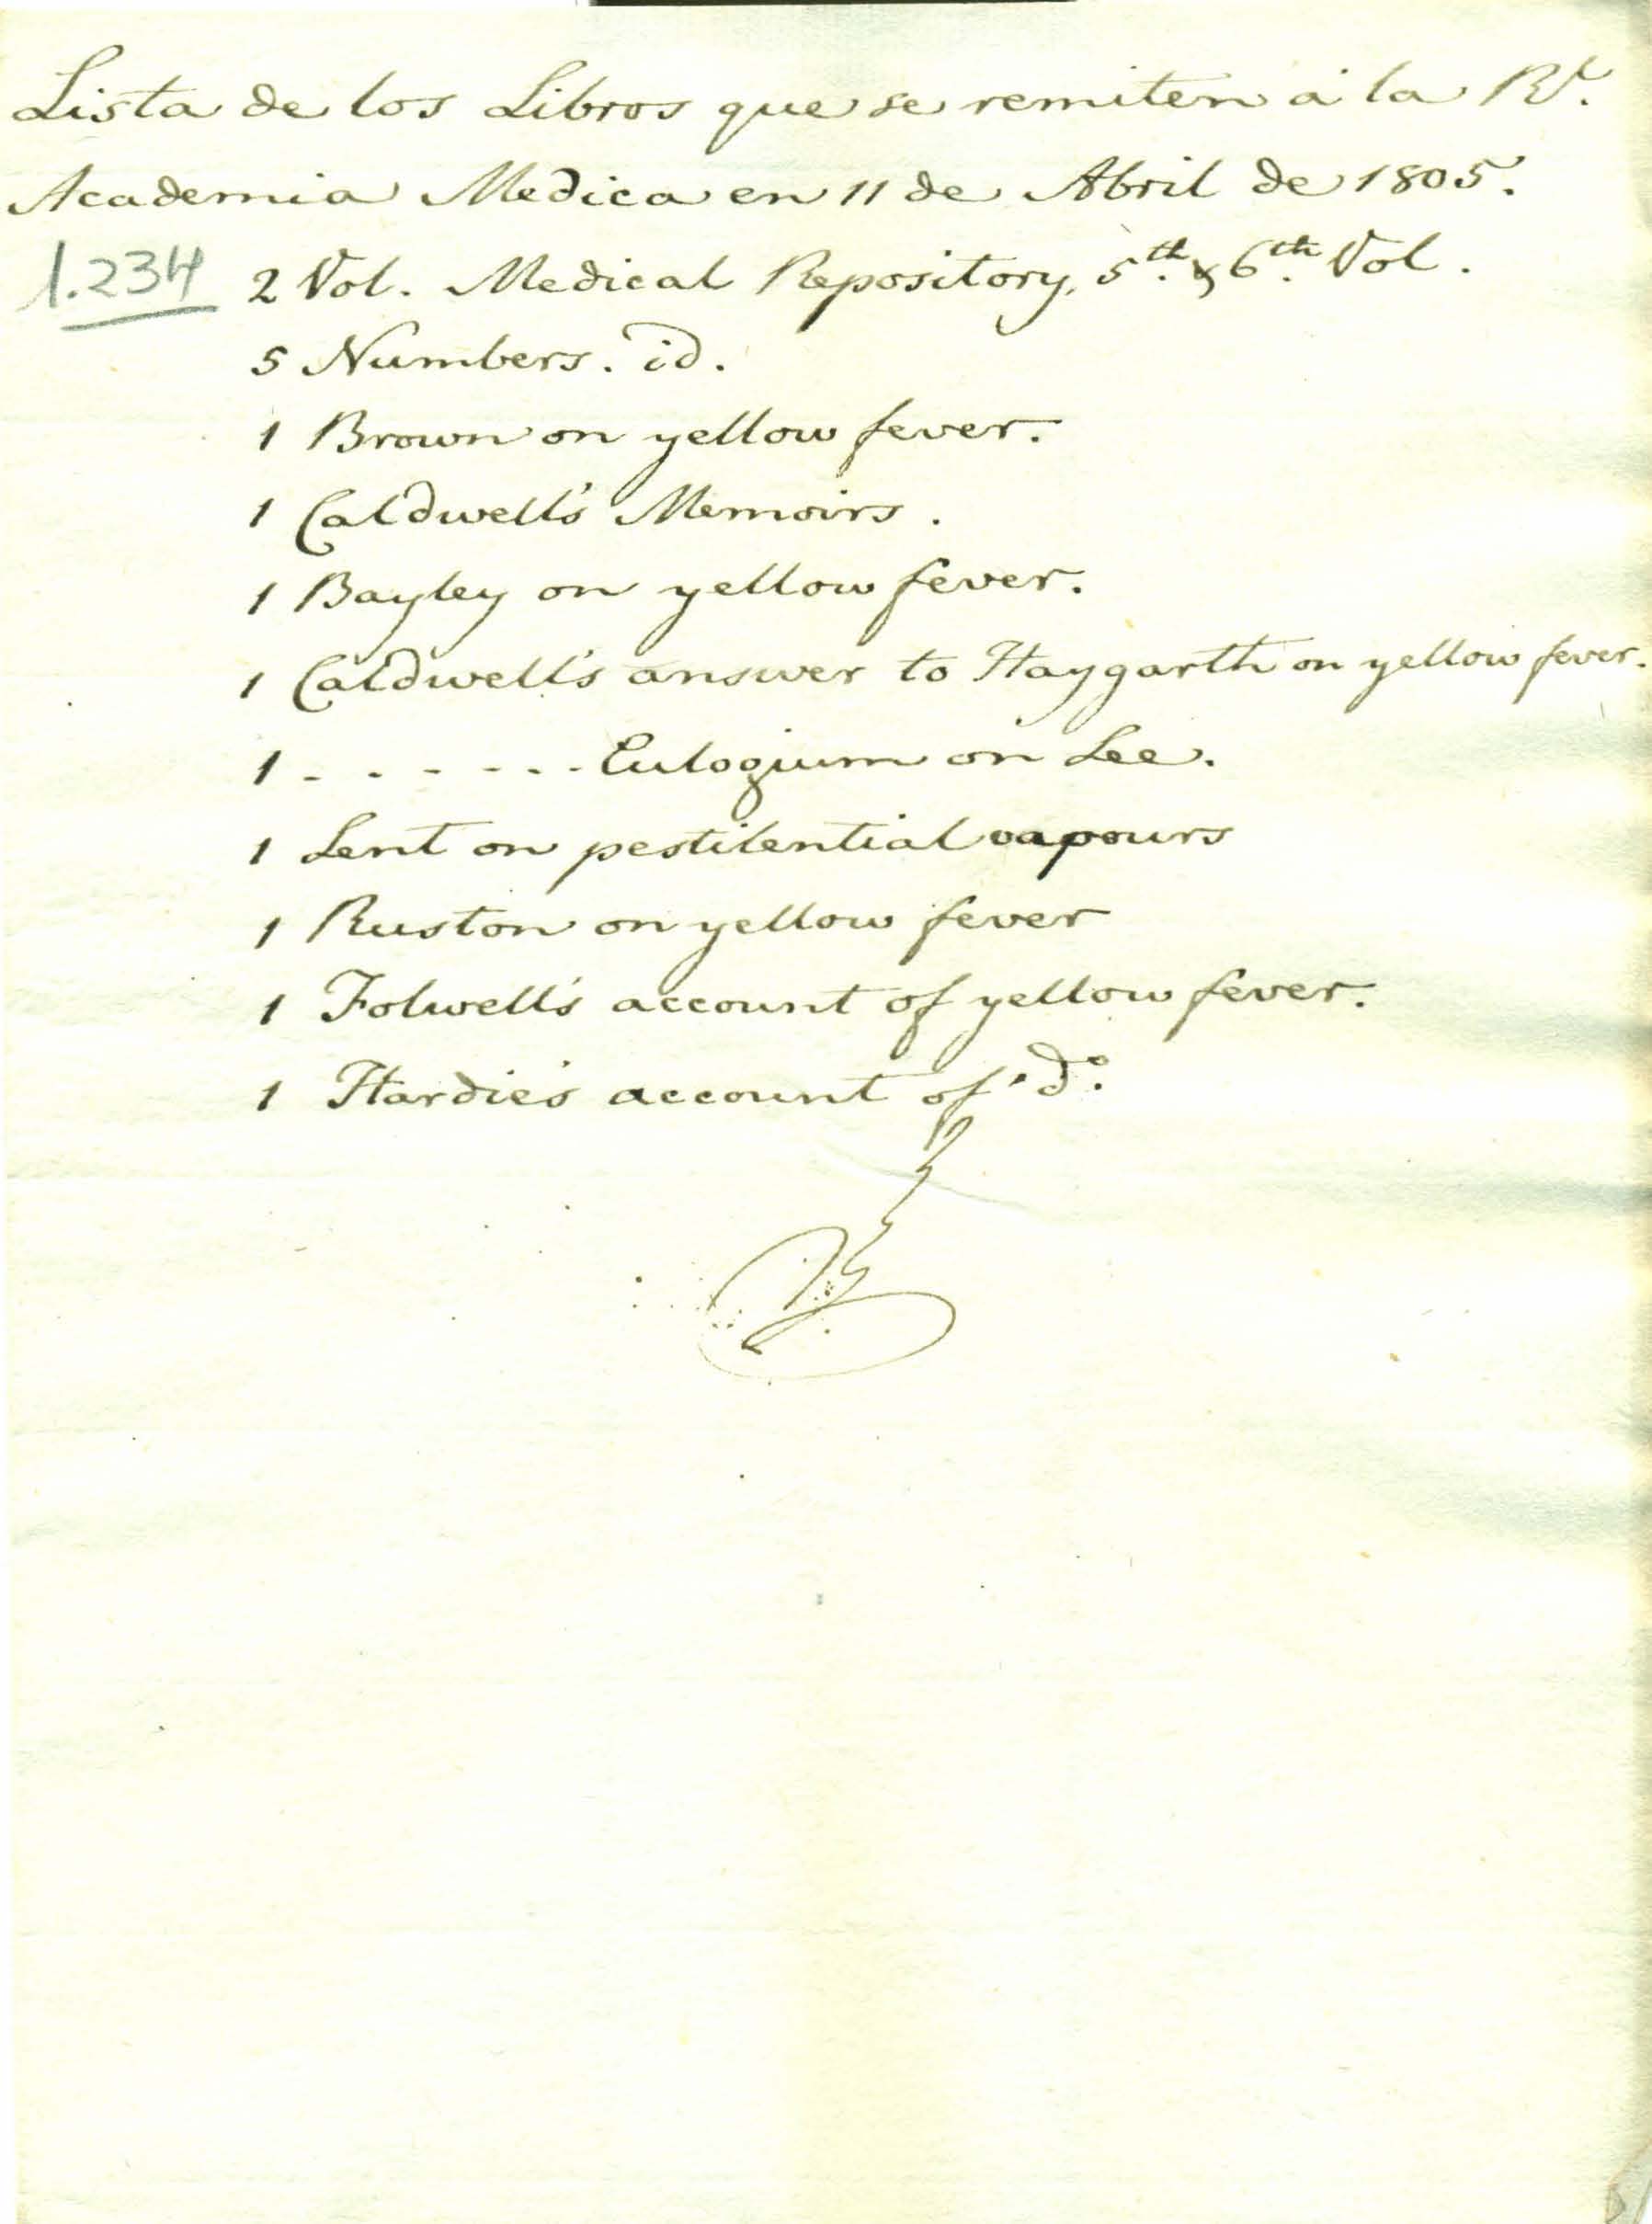 Lista de los Libros que se remiten á la Rl.
Academia Medica en 11 de Abril de 1805.
1.234
2 Vol. Medical Repository, 5th. & 6th. Vol.
5 Numbers. id.
1 Brown on yellow fever.
1 Caldwell's Memoirs.
1 Bayley on yellow fever.
1 Caldwell's answer to Haygarth on yellow fever.
1 - - - - - - - Eulogium on Lee.
1 Lent on pestilential vapours
1 Ruston on yellow fever
1 Folwell's account of yellow fever.
1 Hardie's account of do.